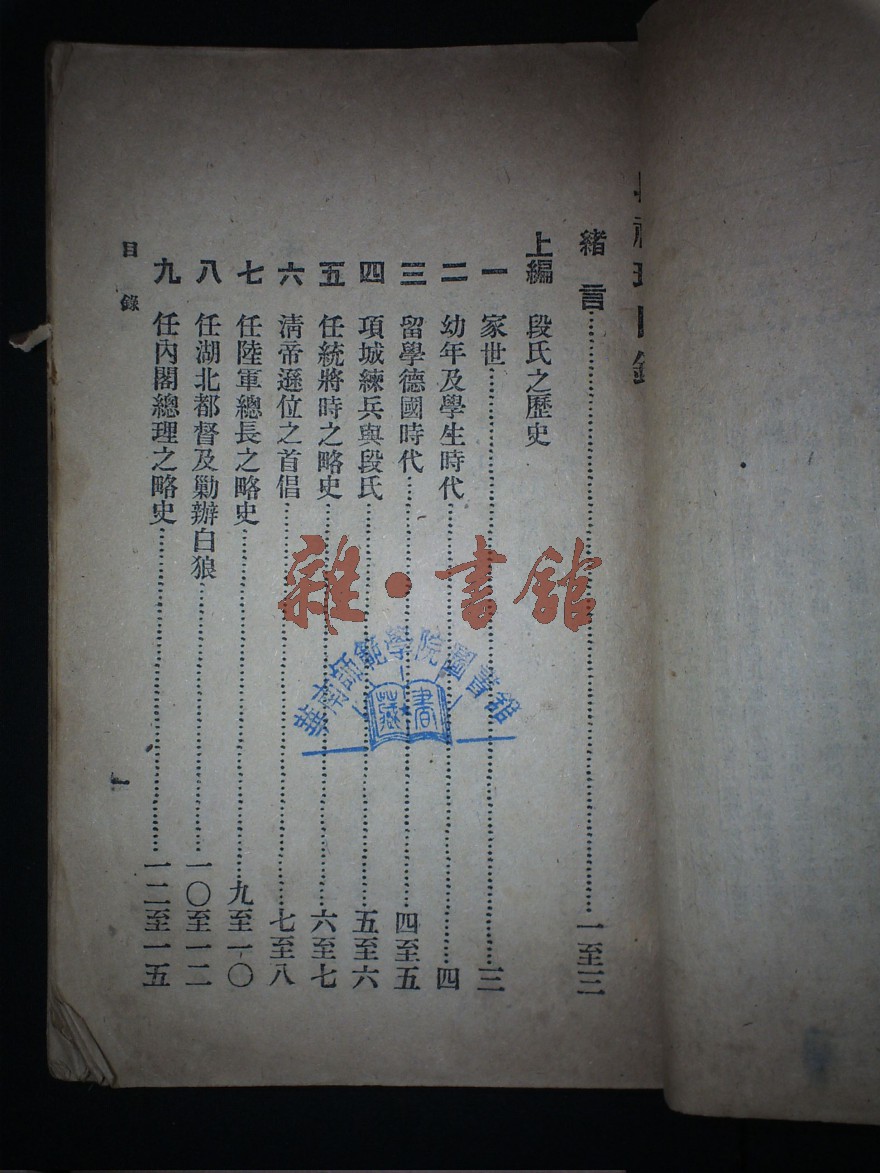 緒言……一至三
上編 段氏之歷史
一 家世……三
二 幼年及學生時代……四
三 留學德國時代……四至五
四 項城練兵與段氏……五至六
五 任統將時之略史……六至七
六 淸帝遜位之首倡……七至八
七 任陸軍總長之略史……九至一〇
八 任湖北都督及勦辦白狼……一〇至一二
九 任內閣總理之略史……一二至一五
目錄
一
雜·書館
華南師範學院圖書館
藏書